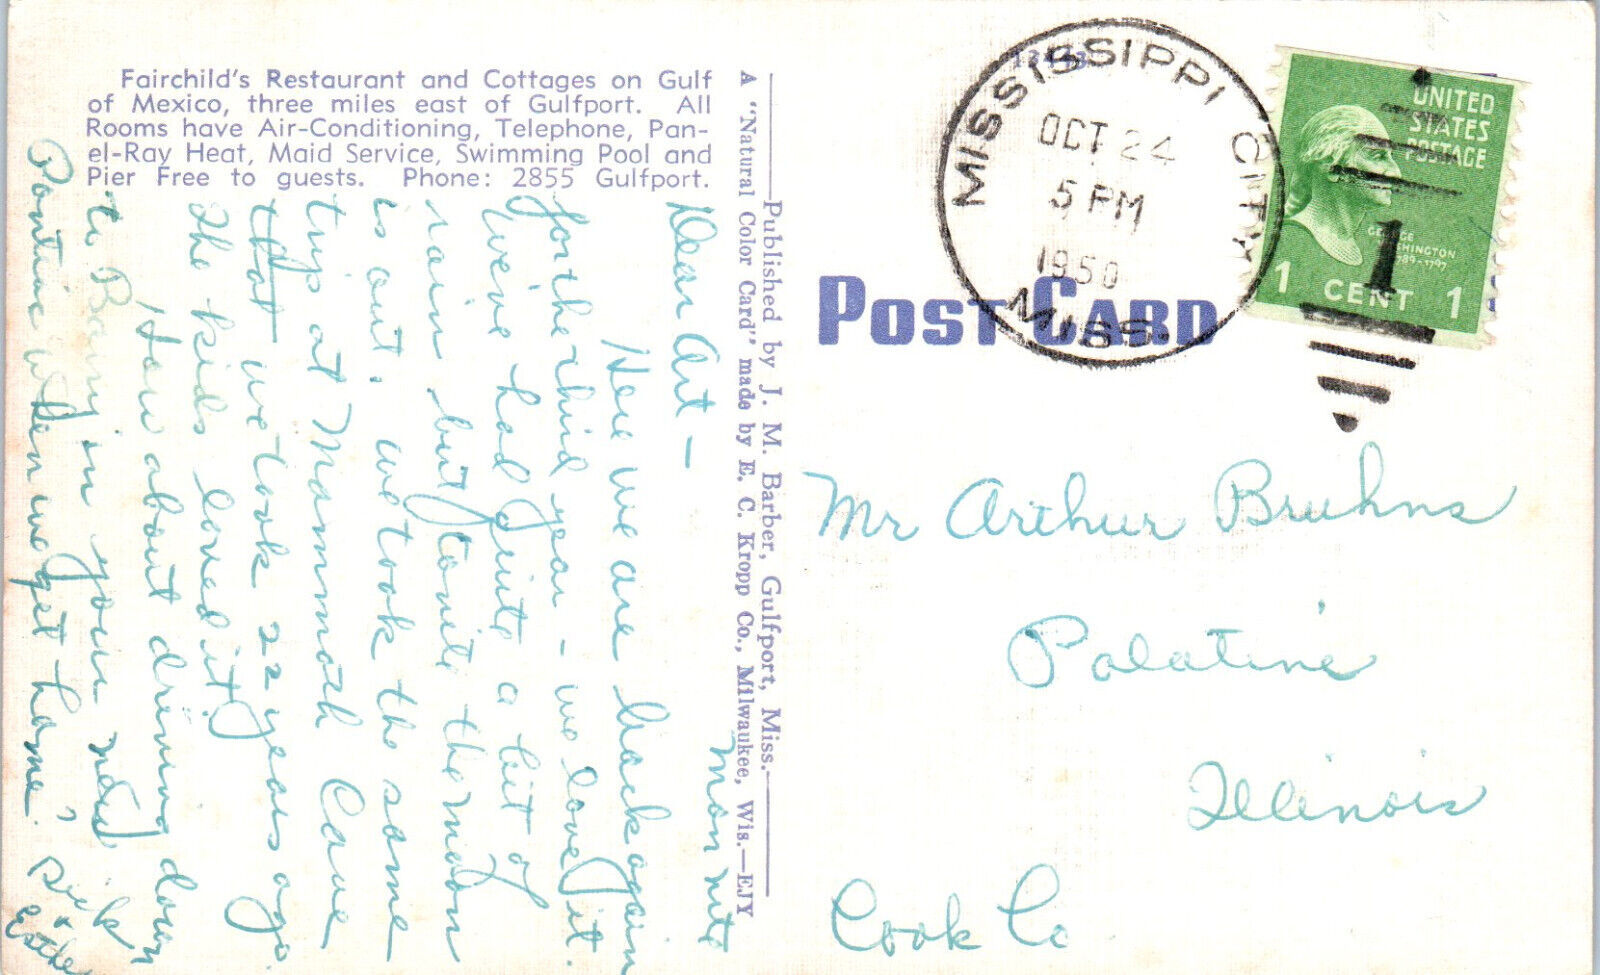 Fairchild's Restaurant and Cottages on Gulf
of Mexico, three miles east of Gulfport. All
Rooms have Air-Conditioning, Telephone, Pan-
el-Ray Heat, Maid Service, Swimming Pool and
Pier Free to guests. Phone: 2855 Gulfport.
Mon nite
Dear Art —
Here we are back again
for the third year — we love it.
We've had quite a bit of
rain but tonite the moon
is out. We took the same
trip at Mammoth Cave
that we took 22 years ago.
The kids loved it!
How about driving down
to in your new
Pontiac when we get home.
Dick
+
Published by J. M. Barber, Gulfport, Miss.
A "Natural Color Card" made by E. C. Kropp Co., Milwaukee, Wis.—EJY
13443
MISSISSIPPI CITY
OCT 24
5 PM
1950
MISS.
UNITED
STATES
POSTAGE
GEORGE
WASHINGTON
1789-1797
1 CENT 1
1
POST CARD
Mr Arthur Bruhns
Palatine
Illinois
Cook Co